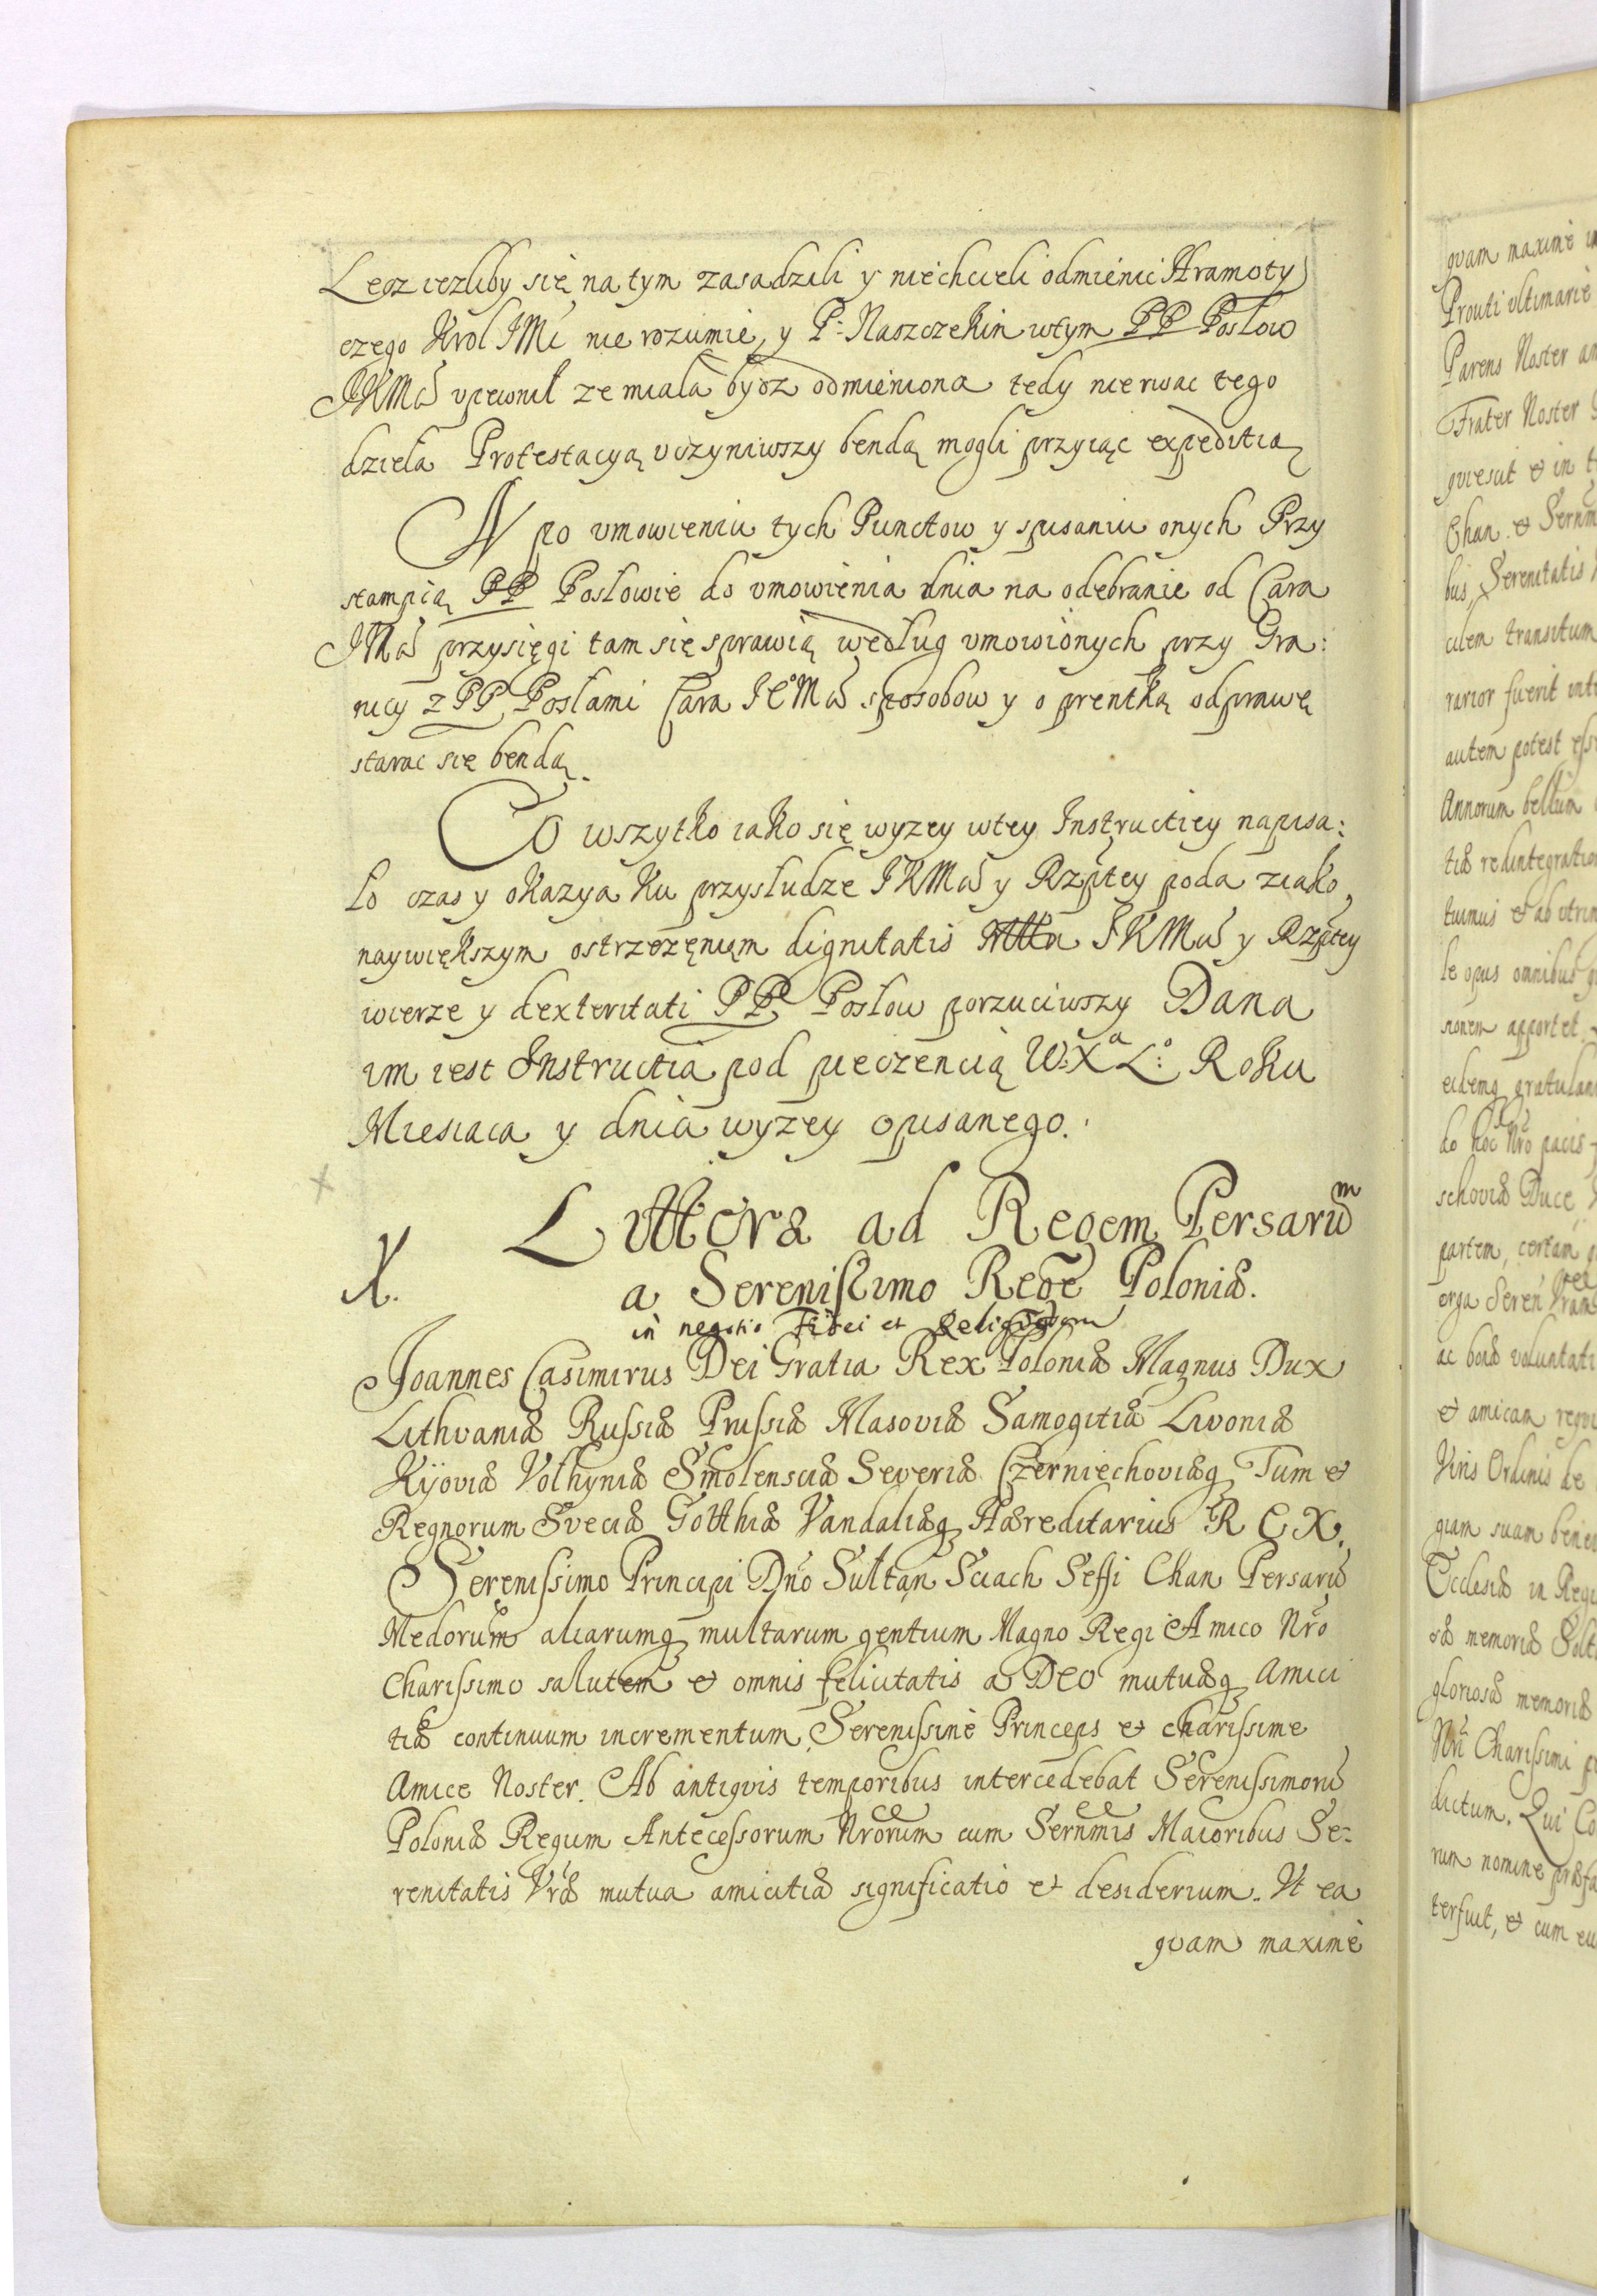 Lecz iezliby się na tym zasadzili y niechcieli odmienić Hramoty
czego Krol JMć nie rozumie, y P: Naszczekin wtym PP Posłow
JKMći vpewnił ze miała bydz odmieniona tedy nie rwac tego
dzieła Protestacyą vczyniwszy bendą mogli przyiąc expeditią
A po vmowieniu tych Punctow y spisaniu onych Przy
stampią PP Posłowie do vmowienia dnia na odebranie od Cara
JMći przysięgi tam się sprawią według vmowionych przy Gra:
nicy z PP Posłami Cara JEºMći sposobow y o prentką odprawę
starac się bendą.
Co wszytko iako się wyzey wtey Instructiey napisa:
ło czas y okazya ku przysłudze JKMći y Rzptey poda ziako
naywiększym ostrzezęnięm dignitatis JKMći y Rzptey
wierze y dexteritati PP Posłow porzuciwszy Dana
im iest Instructia pod pieczencią W.Xª Lº: Roku
Miesiaca y dnia wyzey opisanego.
Litteræ ad Regem Persarum
X. a Serenissimo Rege Poloniæ.
in negotio Fidei et
Joannes Casimirus Dei Gratia Rex Poloniæ Magnus Dux
Lithvaniæ Russiæ Prussiæ Masoviæ Samogitiæ Livoniæ
Kijoviæ Volhyniæ Smolensciæ Severiæ Czerniechoviæq Tum &
Regnorum Sveciæ Gotthiæ Vandaliæq Hæreditarius REX.
Serenissimo Principi Dno Sultan Sciach Seffi Chan Persarū
Medorum aliarumq multarum gentium Magno Regi Amico Nro
Charissimo salutem & omnis felicitatis a DEO mutuæq Amici
tiæ continuum incrementum, Serenissime Princeps & charissime
Amice Noster. Ab antiqvis temporibus intercedebat Serenissimorū
Poloniæ Regum Antecessorum Nrorum cum Sernmis Maioribus Se:
renitatis Vræ mutua amicitiæ significatio & desiderium. Vt ea
qvam maximè
qvam maximè
Prouti ultimariè
Parens Noster
Frater Noster
qviescit & in
Chan. &
bus, Serenitatis
transitum
rarior fuerit
autem potest
Annorum bellum
tiæ
tuimus & ab
le opus omnibus
apportet
eidemq
do hoc Nro pacis
schoviæ Duce
partem, certam
erga Seren
ac bonæ voluntati
& amicam
Viris Ordinis de
suam
Ecclesiæ in
memoriæ
gloriosæ memoriæ
Nri Charissimi
dictum. Qui
nomine
terfuit, & cum